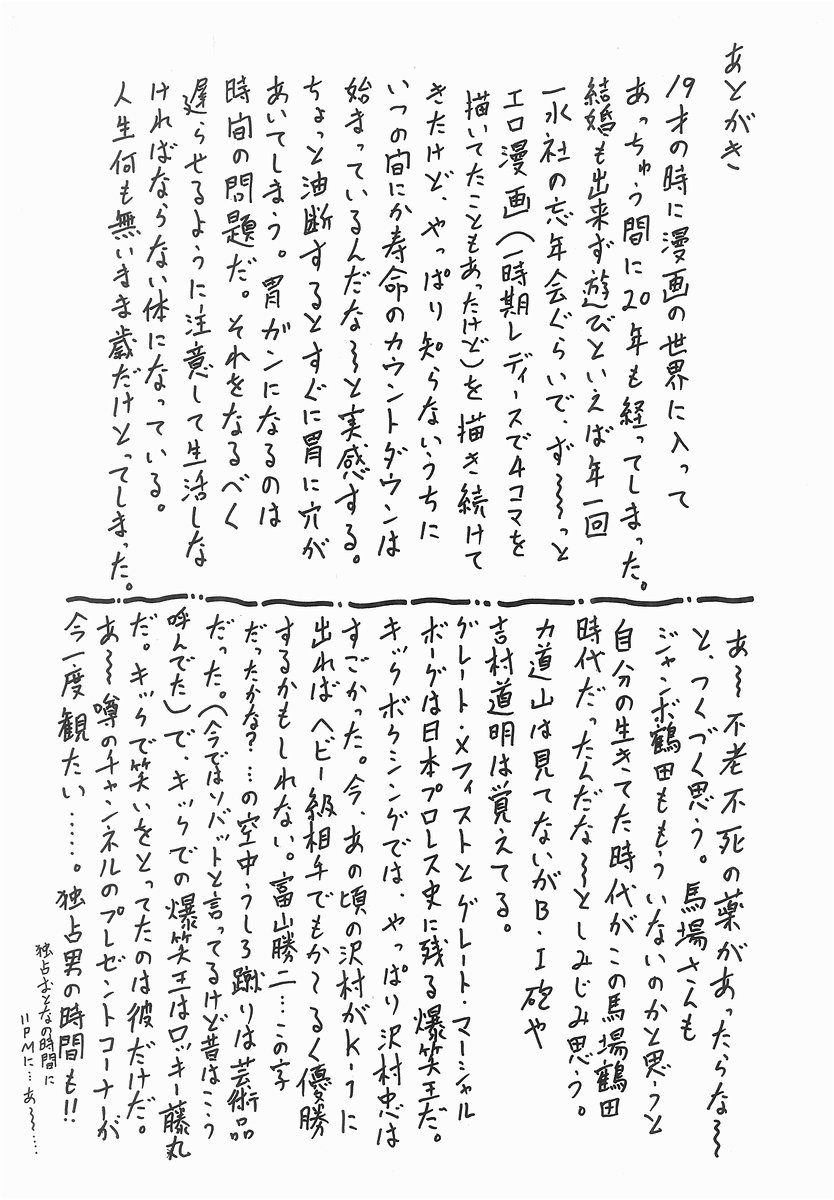 あとがき
19才の時に漫画の世界に入って
あっちゅう間に20年も経ってしまった。
結婚も出来ず遊びといえば年一回
一水社の忘年会ぐらいで、ず〜〜っと
エロ漫画(一時期レディースで4コマを
描いてたこともあったけど)を描き続けて
きたけど、やっぱり知らないうちに
いつの間にか寿命のカウントダウンは
始まっているんだな〜と実感する。
ちょっと油断するとすぐに胃に穴が
あいてしまう。胃ガンになるのは
時間の問題だ。それをなるべく
遅らせるように注意して生活しな
ければならない体になっている。
人生何も無いまま歳だけとってしまった。
あ〜不老不死の薬があったらな〜
と、つくづく思う。馬場さんも
ジャンボ鶴田ももういないのかと思うと
自分の生きてた時代がこの馬場鶴田
時代だったんだな〜としみじみ思う。
力道山は見てないがB・I砲や
吉村道明は覚えてる。
グレート・メフィストとグレート・マーシャル
ボーグは日本プロレス史に残る爆笑王だ。
キックボクシングでは、やっぱり沢村忠は
すごかった。今、あの頃の沢村がK-1に
出ればヘビー級相手でもかてるく優勝
するかもしれない。富山勝二…この字
だったかな?…の空中うしろ蹴りは芸術品
だった。(今ではソバットと言ってるけど昔はこう
呼んでた)で、キックでの爆笑王はロッキー藤丸
だ。キックで笑いをとってたのは彼だけだ。
あ〜噂のチャンネルのプレゼントコーナーが
今一度観たい……。独占男の時間も!!
独占おとなの時間に
11PMに…あ〜〜……